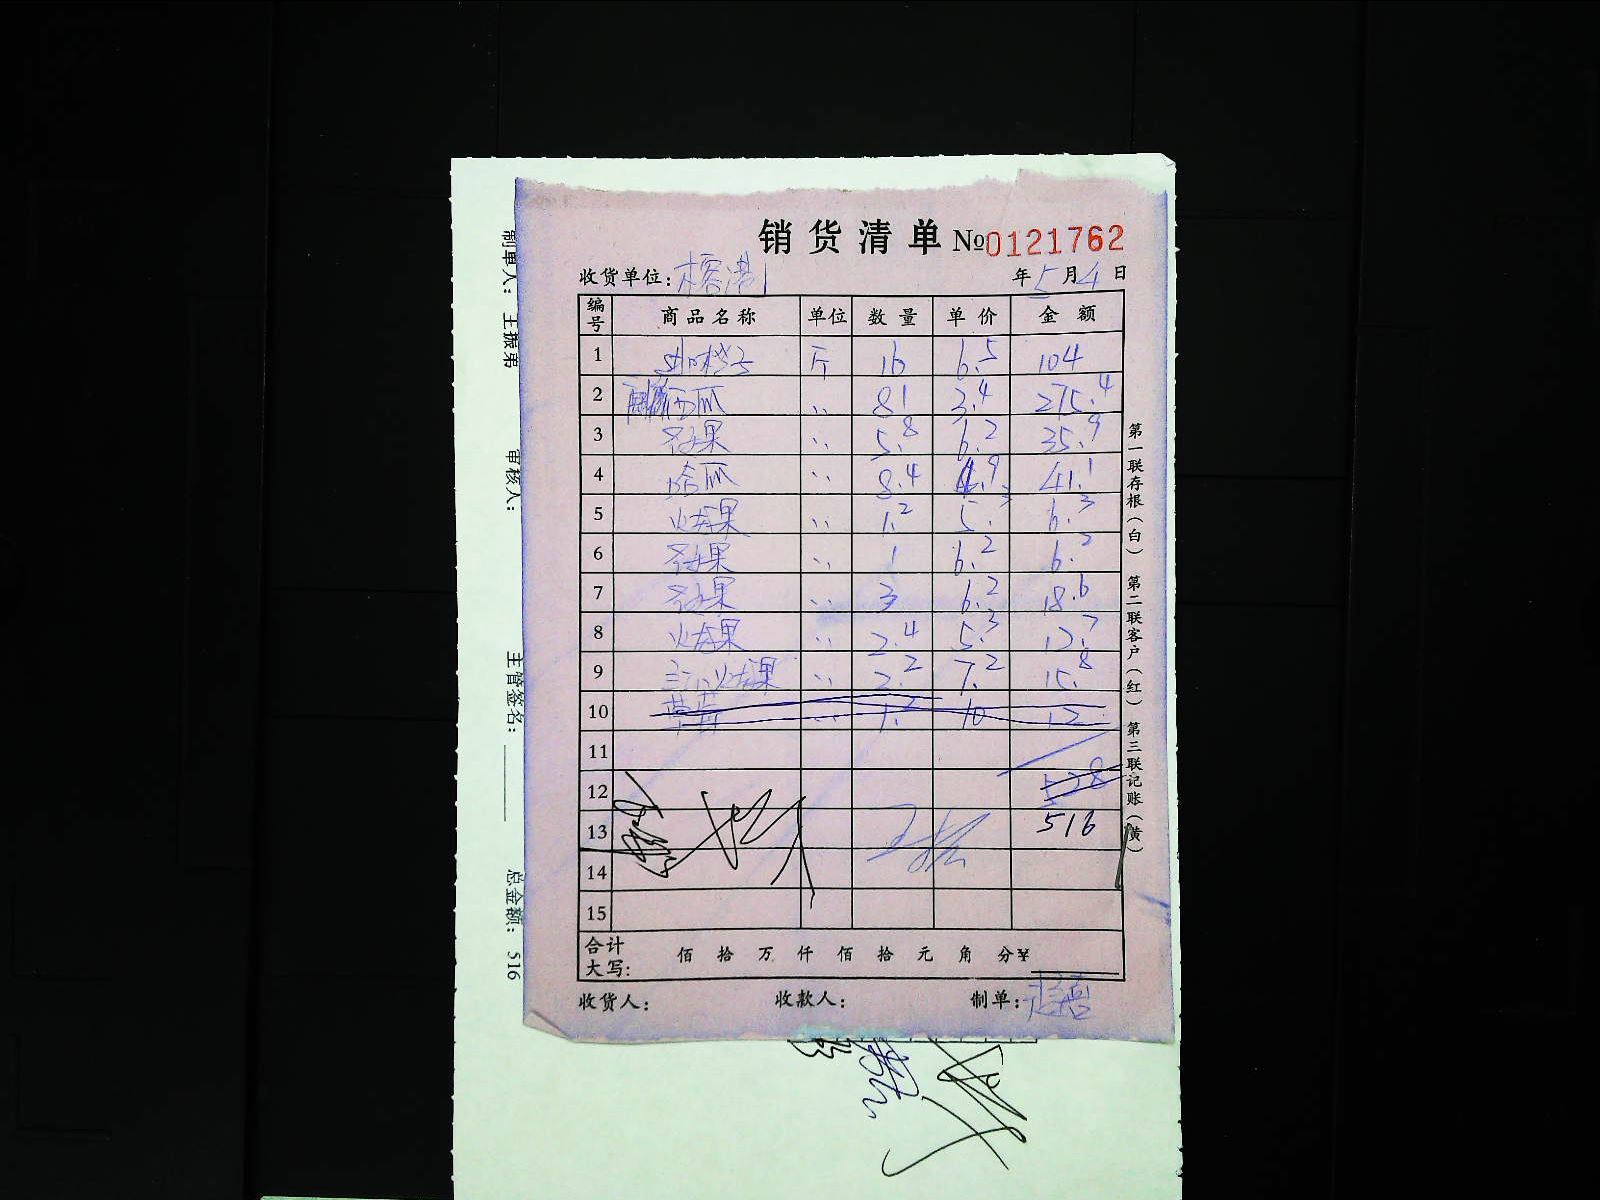 销货清单 №0121762
收货单位: 榕港 年5月4日
编号 商品名称 单位 数量 单价 金额
1 斤 16 6.5 104
2 西瓜 〃 81 3.4 275.4
3 苹果 〃 5.8 6.2 35.9
4 哈瓜 〃 8.4 4.9 41.1
5 火龙果 〃 1.2 5.3 6.3
6 苹果 〃 1 6.2 6.2
7 苹果 〃 3 6.2 18.6
8 火龙果 〃 2.4 5.3 12.7
9 火龙果 〃 2.2 7.2 15.8
10 草莓 〃 1.2 10 12
11
12 528
13 516
14
15
合计大写: 佰 拾 万 仟 佰 拾 元 角 分 ¥
收货人: 收款人: 制单:
第一联存根(白) 第二联客户(红) 第三联记账(黄)
制单人: 王振弟 审核人: 主管签名: 总金额: 516